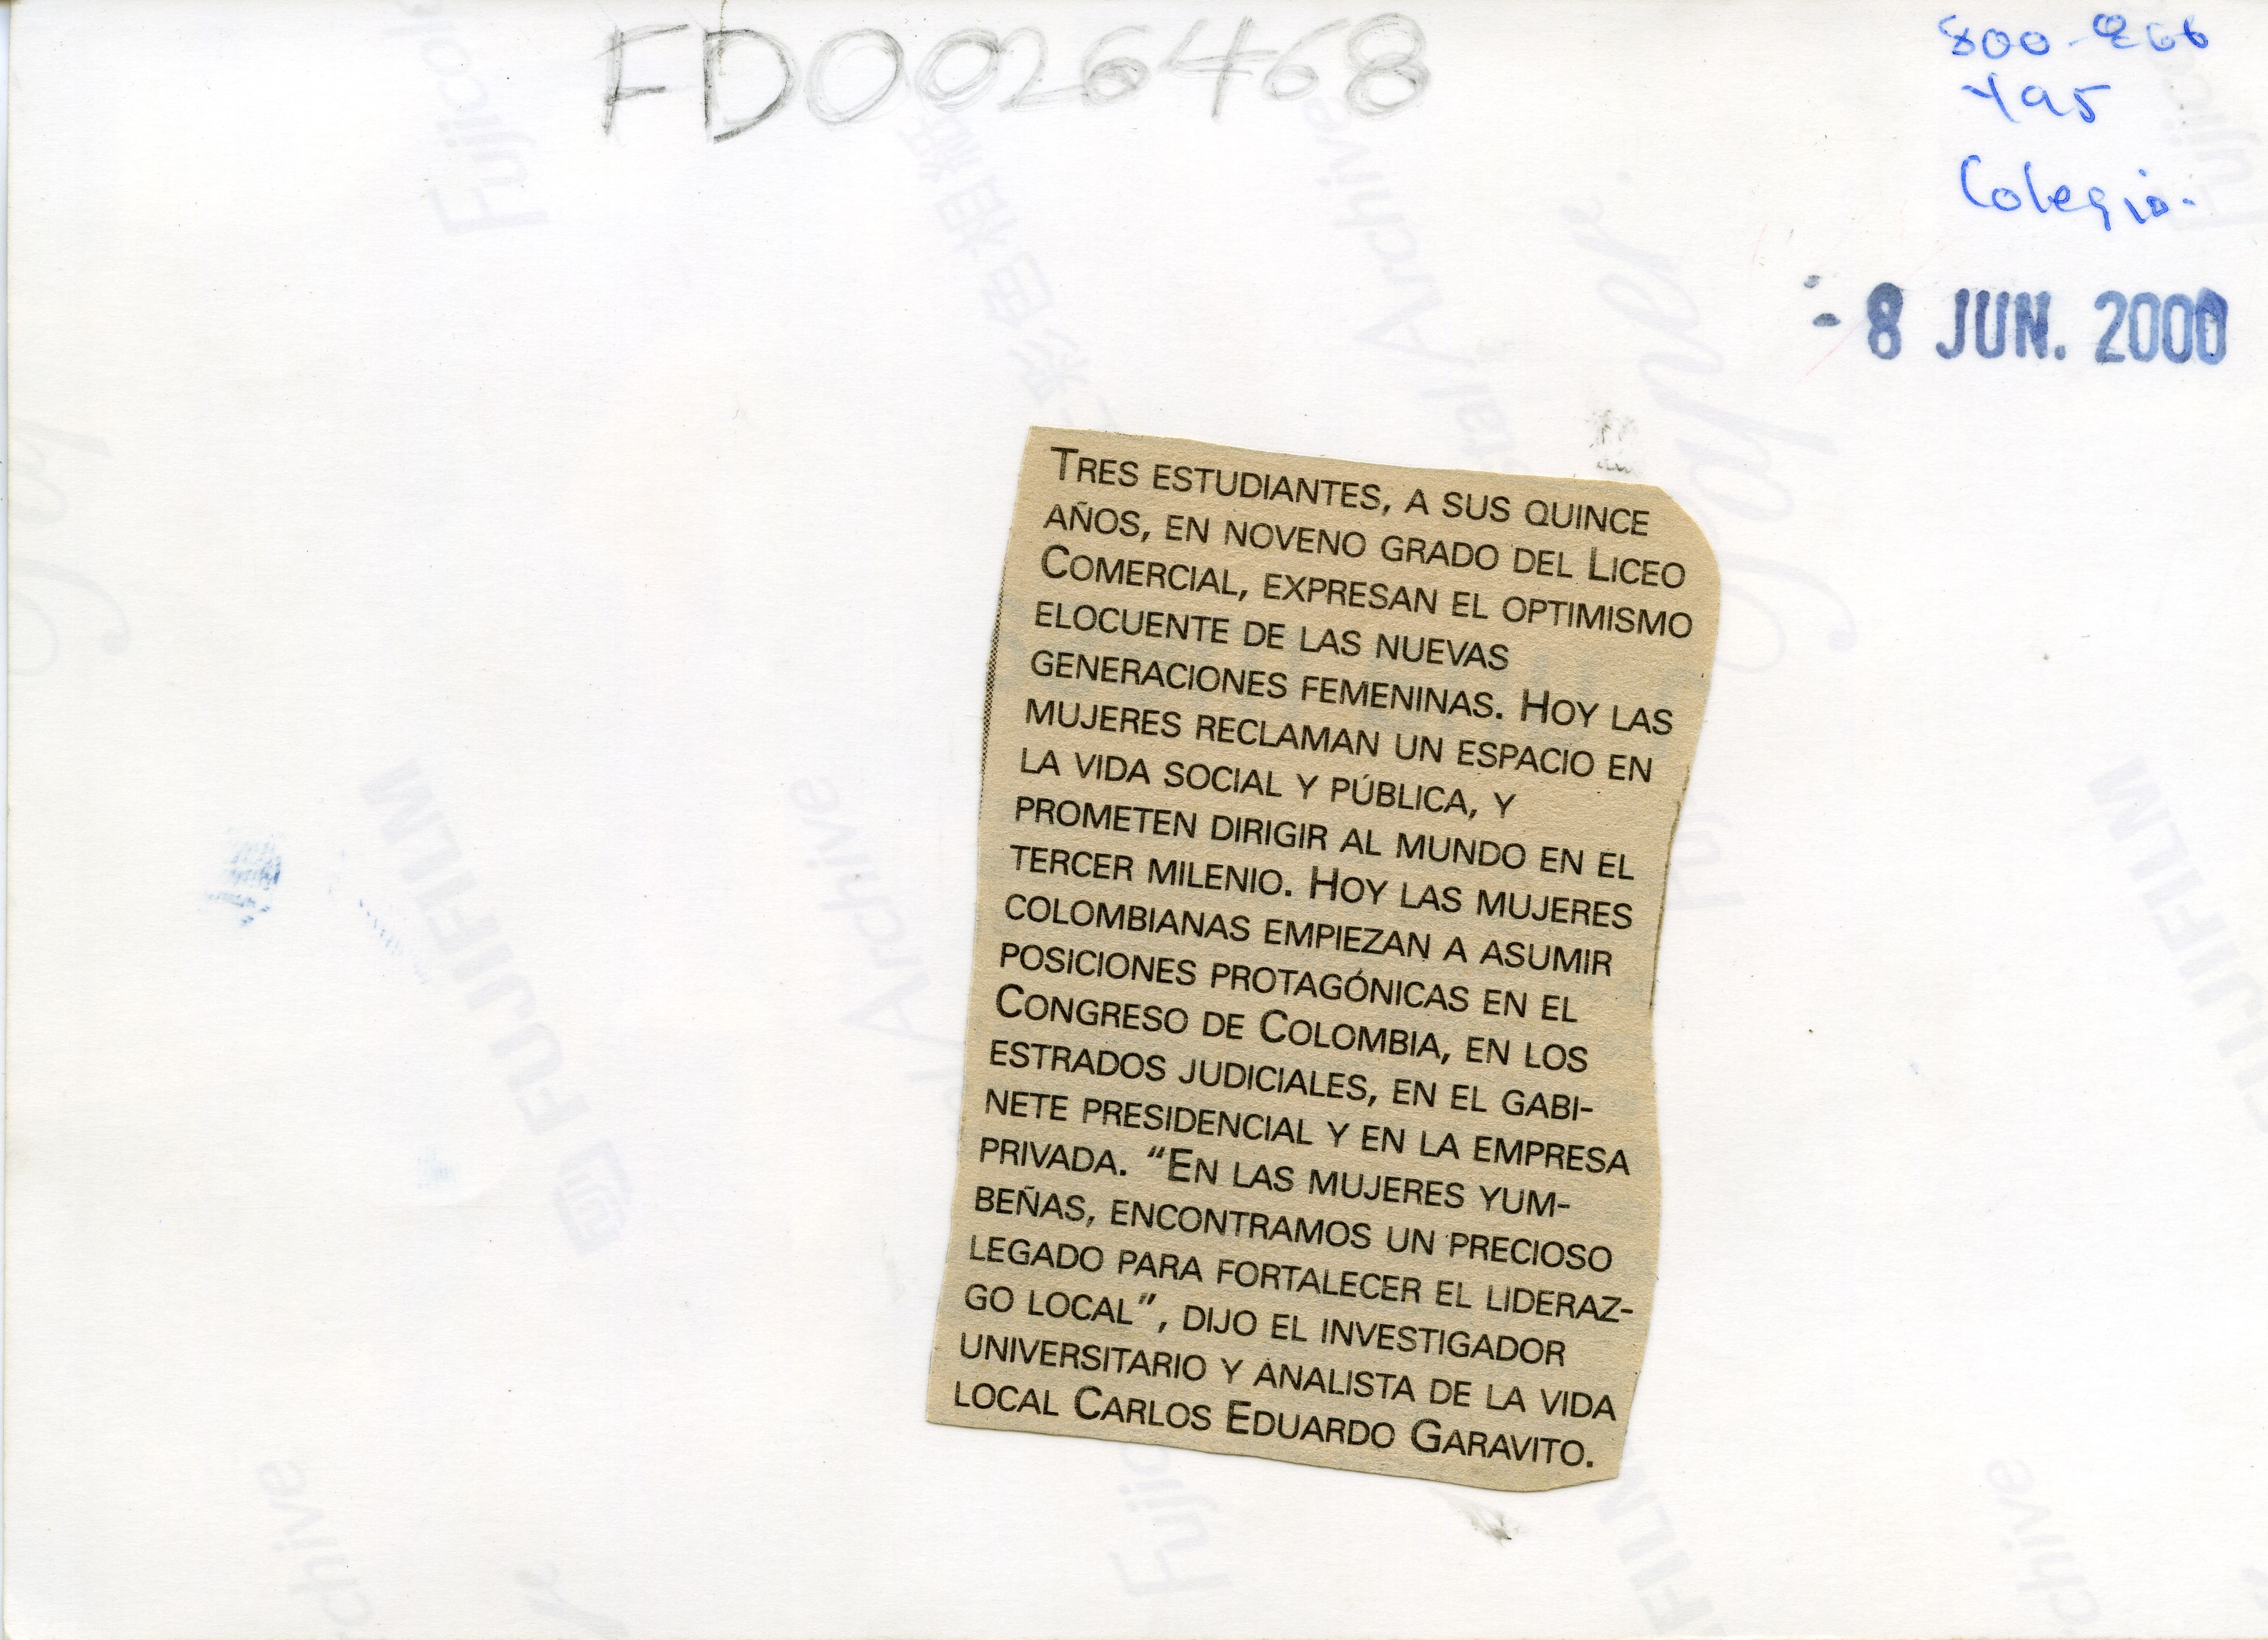 FD0026468
Colegio.
- 8 JUN. 2000
TRES ESTUDIANTES, A SUS QUINCE
AÑOS, EN NOVENO GRADO DEL LICEO
COMERCIAL, EXPRESAN EL OPTIMISMO
ELOCUENTE DE LAS NUEVAS
GENERACIONES FEMENINAS. HOY LAS
MUJERES RECLAMAN UN ESPACIO EN
LA VIDA SOCIAL Y PÚBLICA, Y
PROMETEN DIRIGIR AL MUNDO EN EL
TERCER MILENIO. HOY LAS MUJERES
COLOMBIANAS EMPIEZAN A ASUMIR
POSICIONES PROTAGÓNICAS EN EL
CONGRESO DE COLOMBIA, EN LOS
ESTRADOS JUDICIALES, EN EL GABI-
NETE PRESIDENCIAL Y EN LA EMPRESA
PRIVADA. “EN LAS MUJERES YUM-
BEÑAS, ENCONTRAMOS UN PRECIOSO
LEGADO PARA FORTALECER EL LIDERAZ-
GO LOCAL”, DIJO EL INVESTIGADOR
UNIVERSITARIO Y ANALISTA DE LA VIDA
LOCAL CARLOS EDUARDO GARAVITO.
FUJIFILM
Archive